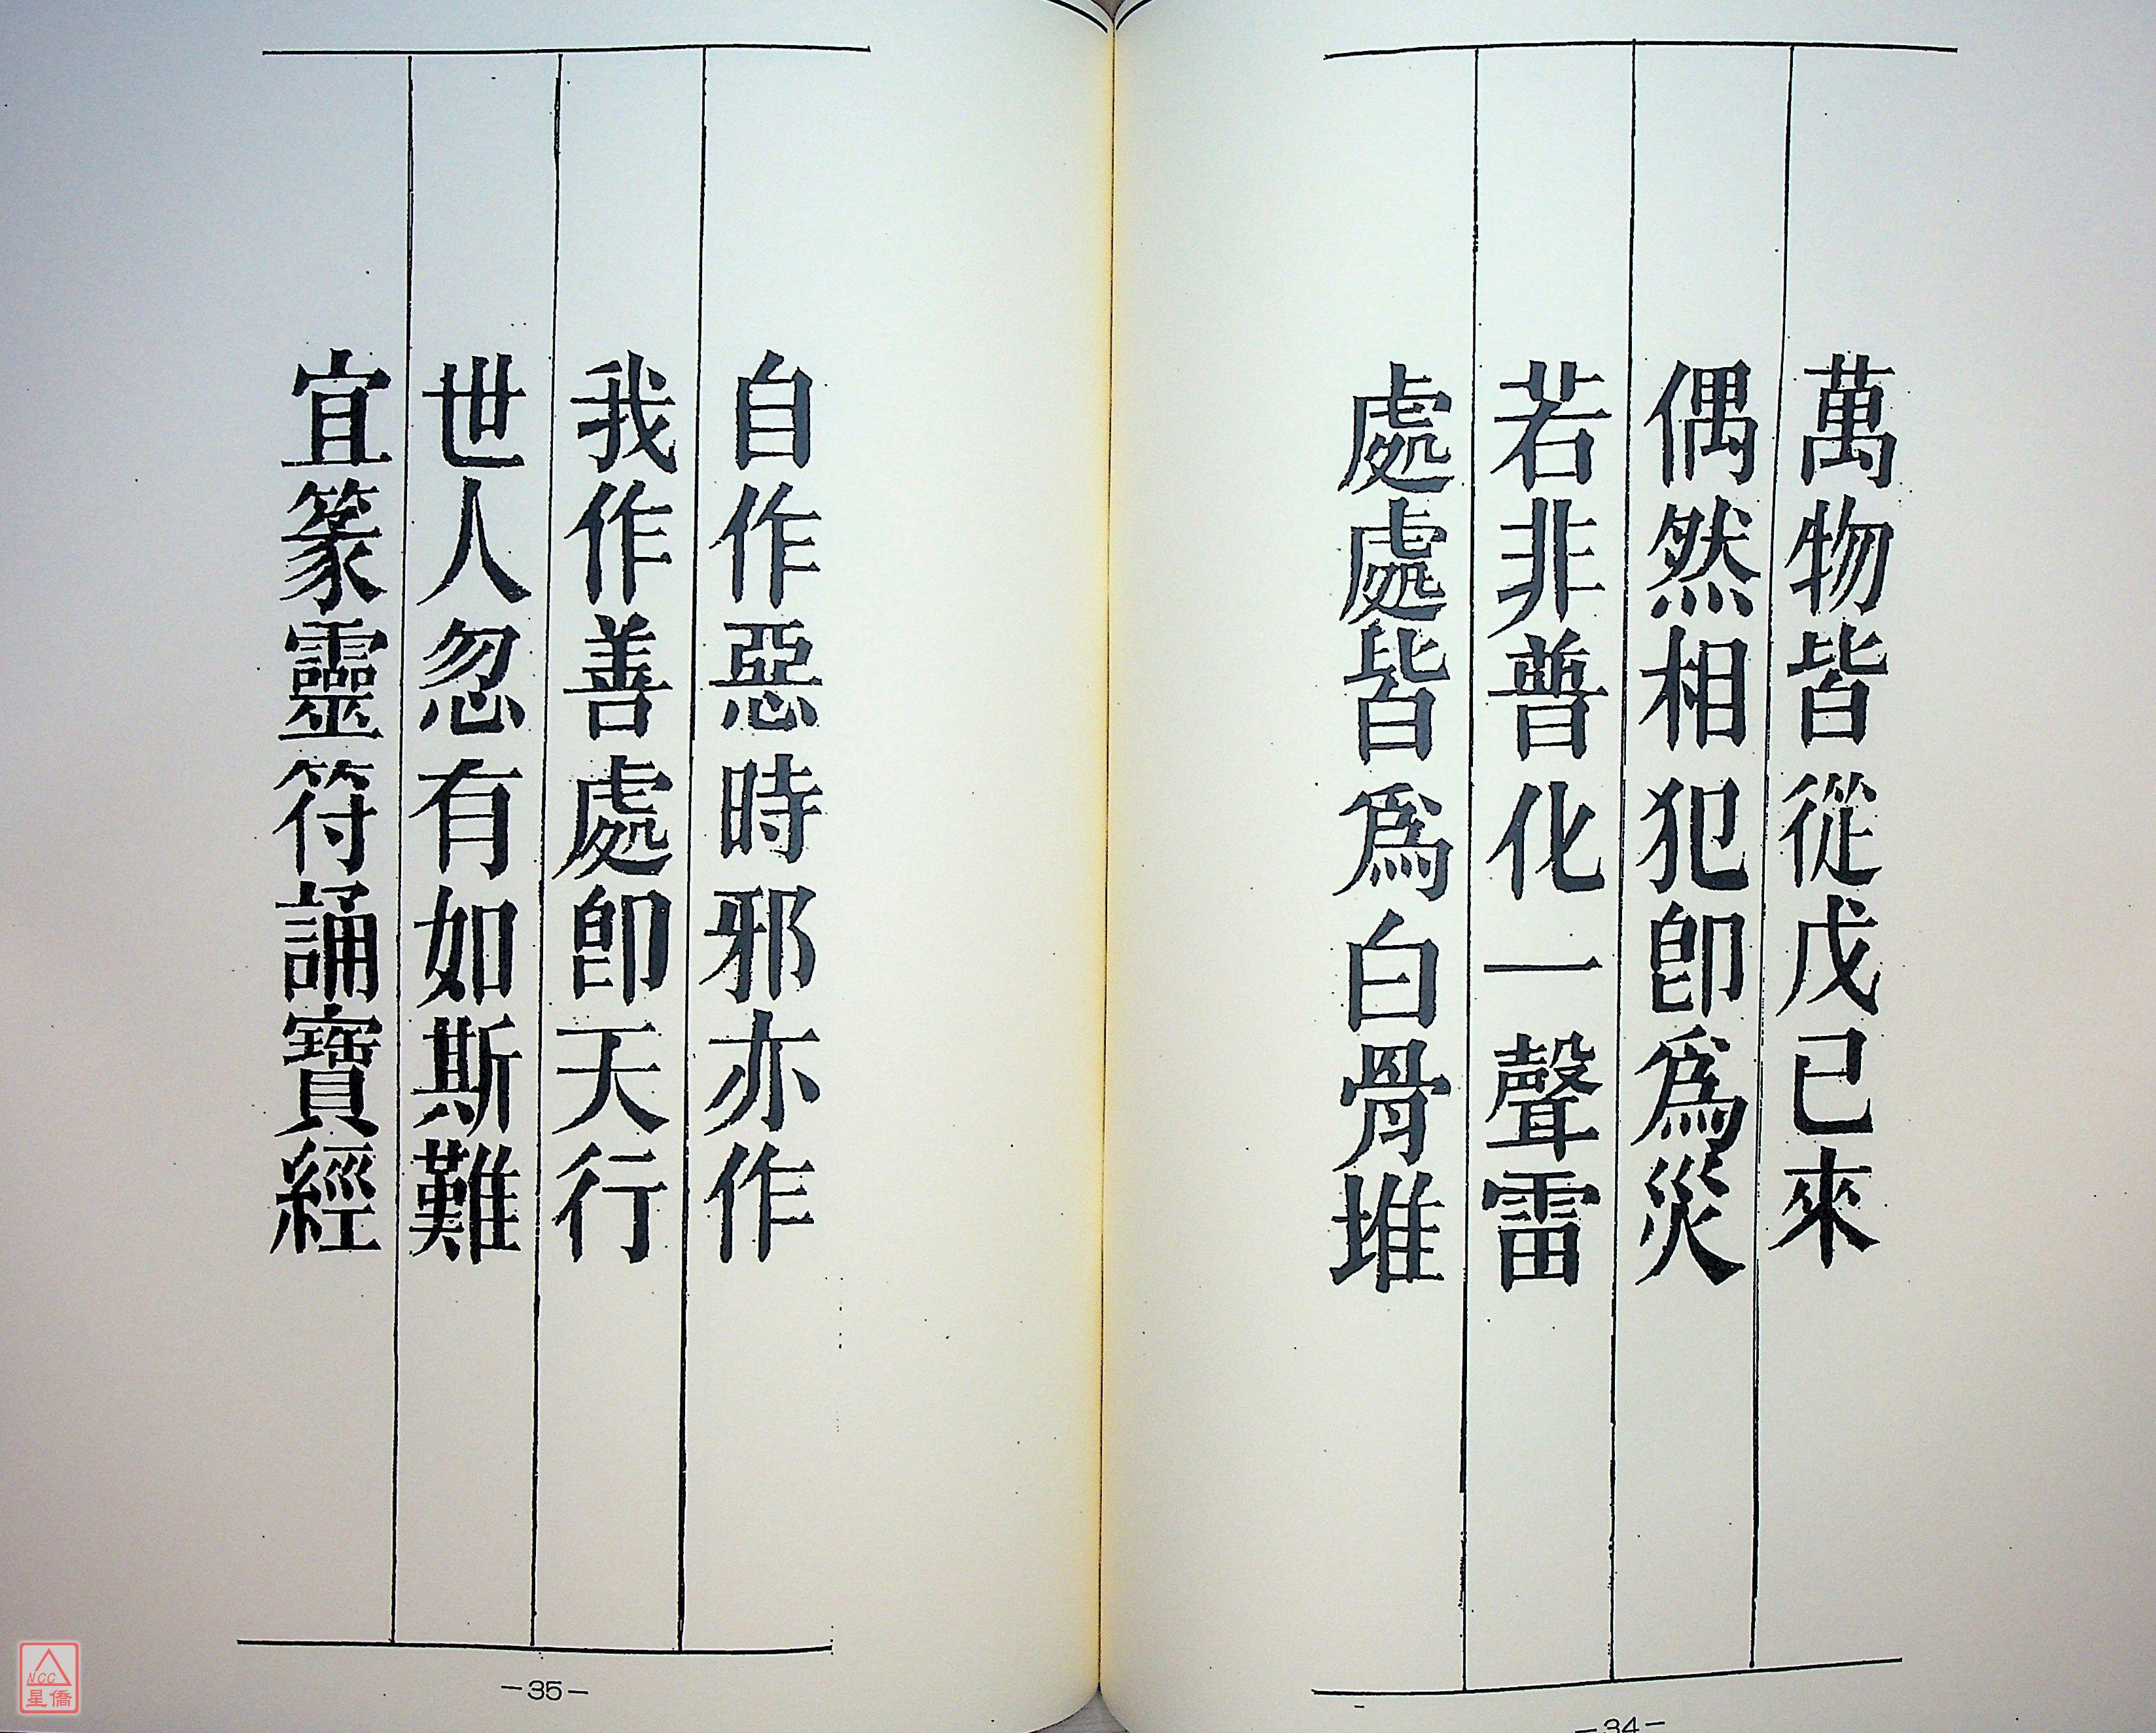 萬物皆從戊已來
偶然相犯卽爲災
若非普化一聲雷
處處皆爲白骨堆
-34-
自作惡時邪亦作
我作善處卽天行
世人忽有如斯難
宜篆靈符誦寶經
-35-
NCC
星僑